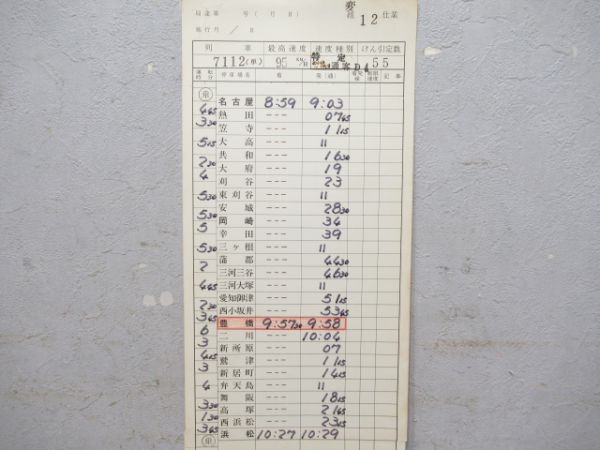 号(一月 日)
変 12 仕業
施行月 / 日
列 車 最高速度 速度種別 けん引定数
7112(単) 95 KM/H 特定 通客D4 55
運転時分 停車場名 着 発(通) 着発線 制限速度 記事
(乗)
名古屋 8:59 9:03
4 45 熱田 --- 07 45
3 30 笠寺 --- 11 15
大高 --- 〃
5 15 共和 --- 16 30
2 30 大府 --- 19
4 刈谷 --- 23
東刈谷 --- 〃
5 30 安城 --- 28 30
5 30 岡崎 --- 34
5 幸田 --- 39
三ヶ根 --- 〃
5 30 蒲郡 --- 44 30
2 三河三谷 --- 46 30
三河大塚 --- 〃
4 45 愛知御津 --- 51 15
2 30 西小坂井 --- 53 45
3 45 豊橋 9:57 30 9:58
6 二川 --- 10:04
3 新所原 --- 07
4 15 鷲津 --- 11 15
3 新居町 --- 14 15
弁天島 --- 〃
4 舞阪 --- 18 15
3 30 高塚 --- 21 45
1 30 西浜松 --- 23 15
3 45 浜松 10:27 10:29
(乗)